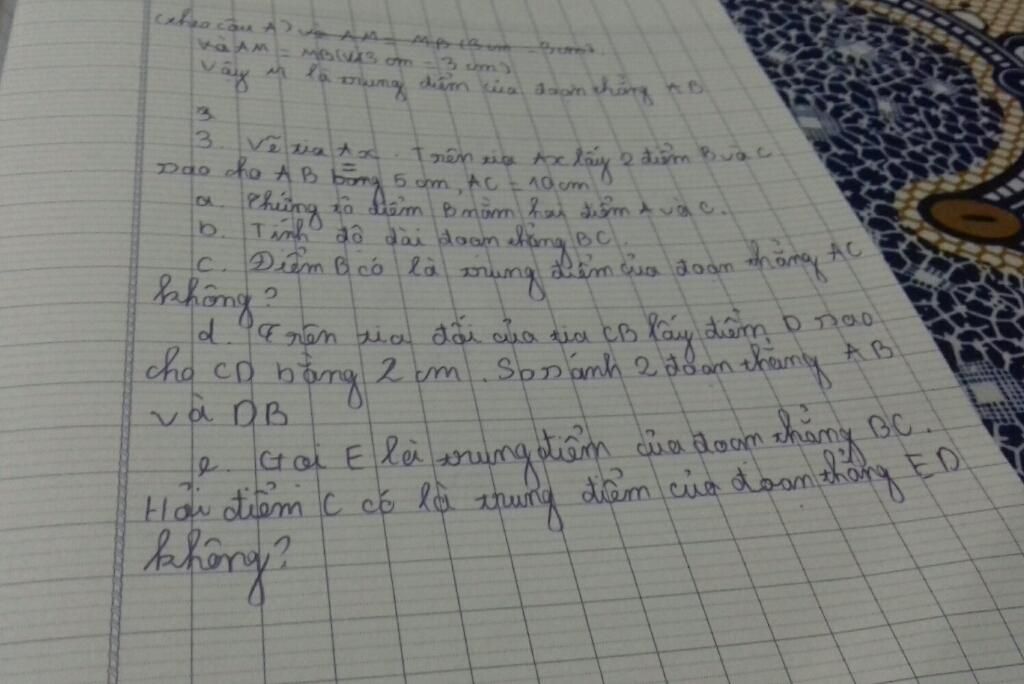 (theo câu A) và AM = MB (3cm = 3cm)
Và AM = MB (Vì 3 cm = 3 cm)
Vậy M là trung điểm của đoạn thẳng AB
3
3. Vẽ tia Ax. Trên tia Ax lấy 2 điểm B và C
sao cho AB bằng 5 cm, AC = 10cm
a. Chứng tỏ điểm B nằm hai điểm A và C.
b. Tính độ dài đoạn thẳng BC.
c. Điểm B có là trung điểm của đoạn thẳng AC
không?
d. Trên tia đối của tia CB lấy điểm D sao
cho CD bằng 2 cm. So sánh 2 đoạn thẳng AB
và DB
e. Gọi E là trung điểm của đoạn thẳng BC.
Hỏi điểm C có là trung điểm của đoạn thẳng ED
không?